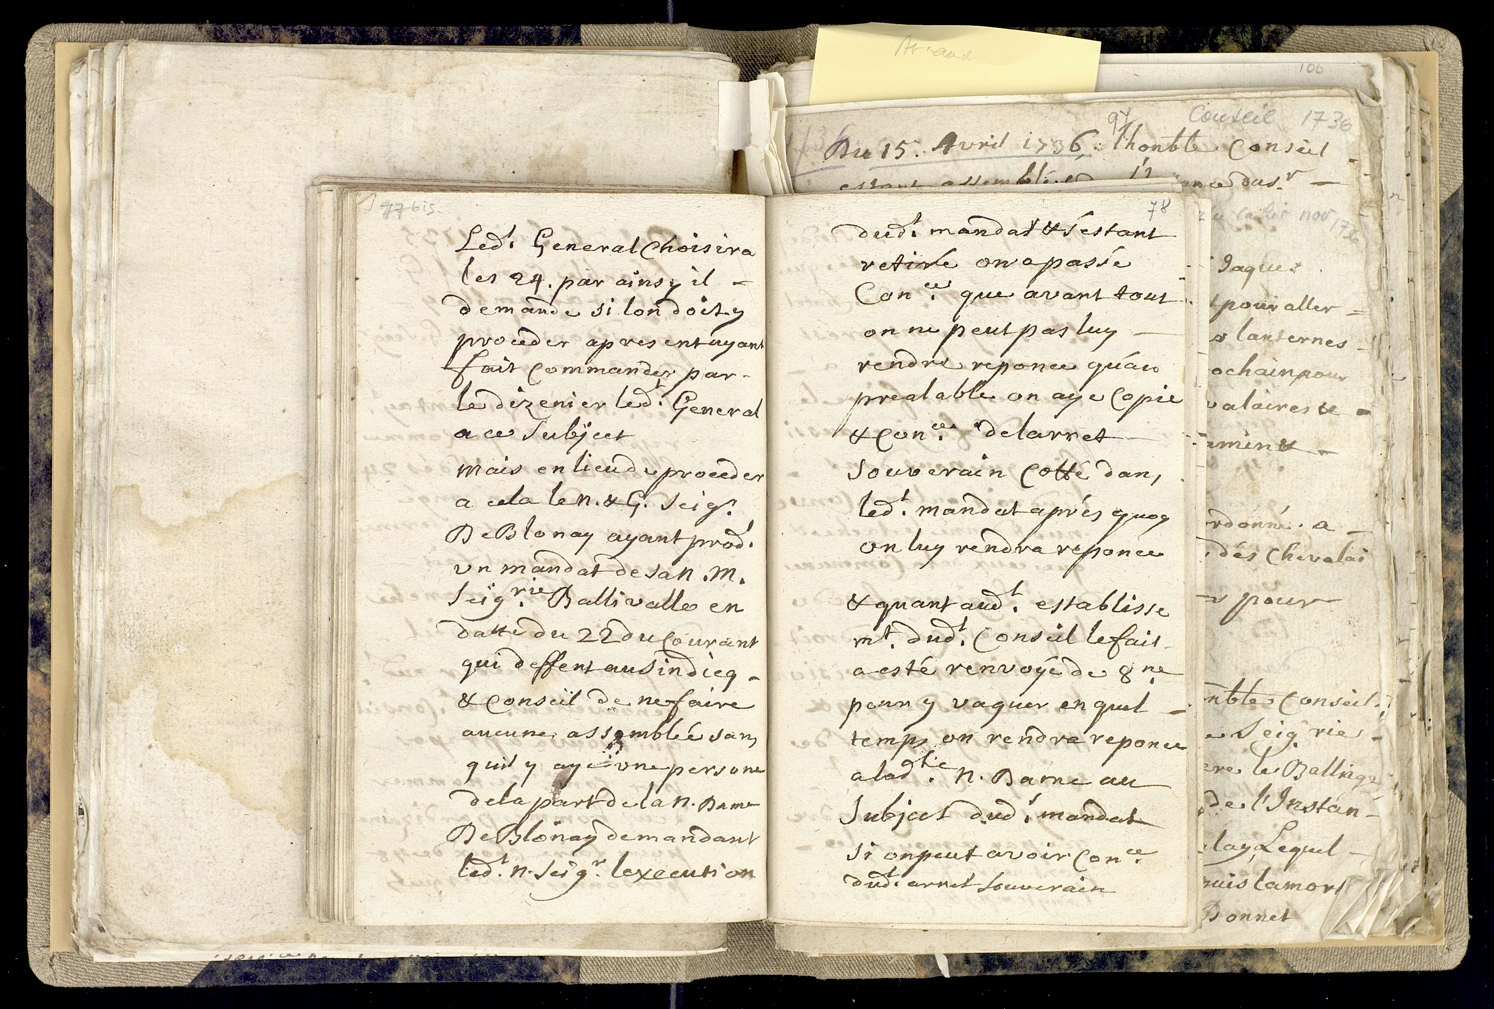 77 bis.
Led.t General Choisira
les 24. par ainsy il -
demande si lon doit y
proceder apres entuyant
fait Commander par-
le dizenier led.t General
a ce Subject
mais en lieu de proceder
a cela le N. & G. Seigr.
De Blonay ayant prod.t
vn mandat de sa N. M.
Seigrie. Ballivalle en
datte du 22 du Courant
qui deffent au Sindicq -
& Conseil de ne faire
aucune assemblée sans
quil y aye vne persone
de la part de la N. Dame
De Blonay demandant
led.t N. Seigr. lexecution
78
dud.t mandat & S'estant
retiré on a passé
Con.ce que avant tout
on ne peut pas luy -
rendre reponce qu'au
prealable on aye Copie
& Con.ce de larret
Souverain Cotté dans
led.t mandat aprés quoy
on luy rendra reponce
& quant aud.t establisse
m.t dud.t Conseil le fait
a esté renvoyé de 8ne
pour y vaquer en quel -
temps on rendra reponce
a lad.te N. Dame au
Subject dud.t mandat
Si on peut avoir Con.ce
dud.t arret Souverain
Arnaud
106
97
Conseil 1736
Du 15. Avril 1736. lhonble Conseil
estant assemblé
nov 1736
Jaques
pour aller -
lanternes -
ochain pour
valaires &
amin &
rdonné. a -
des Chevalai
pour
nble Conseil
Seigrie
le Ballinge
de l'Instan-
lay Lequel -
puis la mort
Bonnet